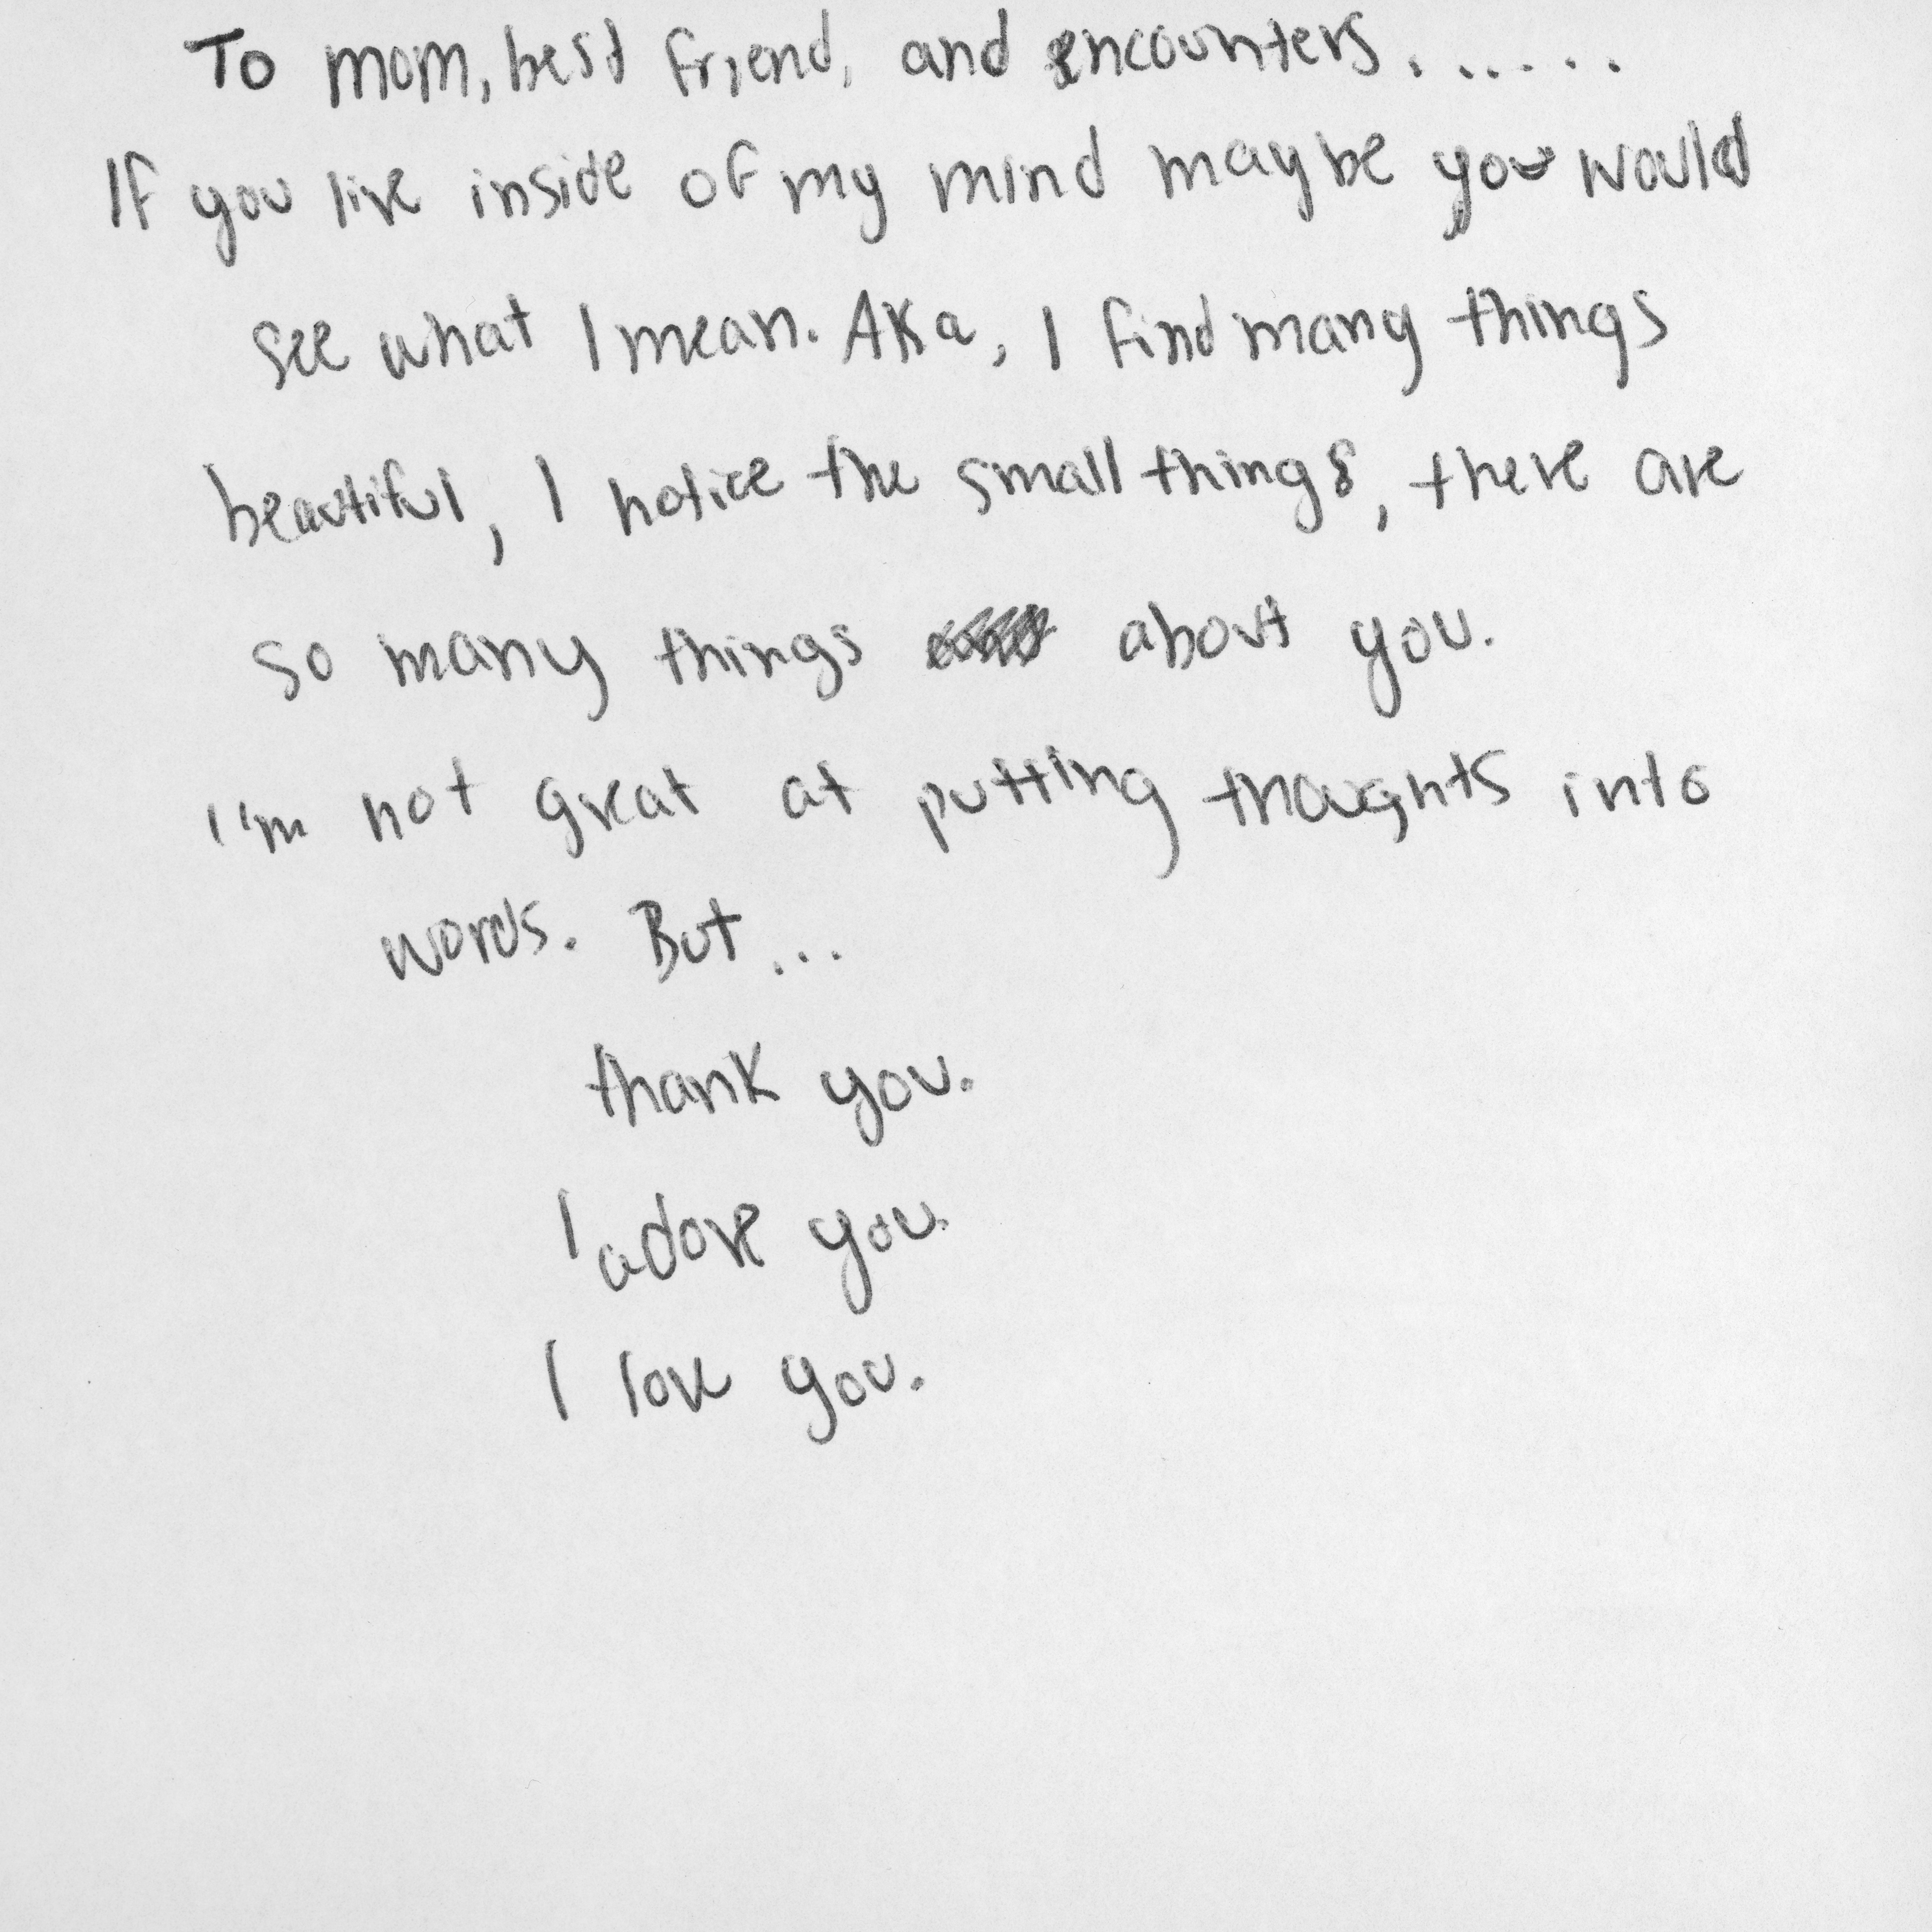 To mom, best friend, and encounters......
If you live inside of my mind maybe you would
see what I mean. AKa, I find many things
beautiful, I notice the small things, there are
so many things about you.
I'm not great at putting thoughts into
words. But...
thank you.
I adore you.
I love you.